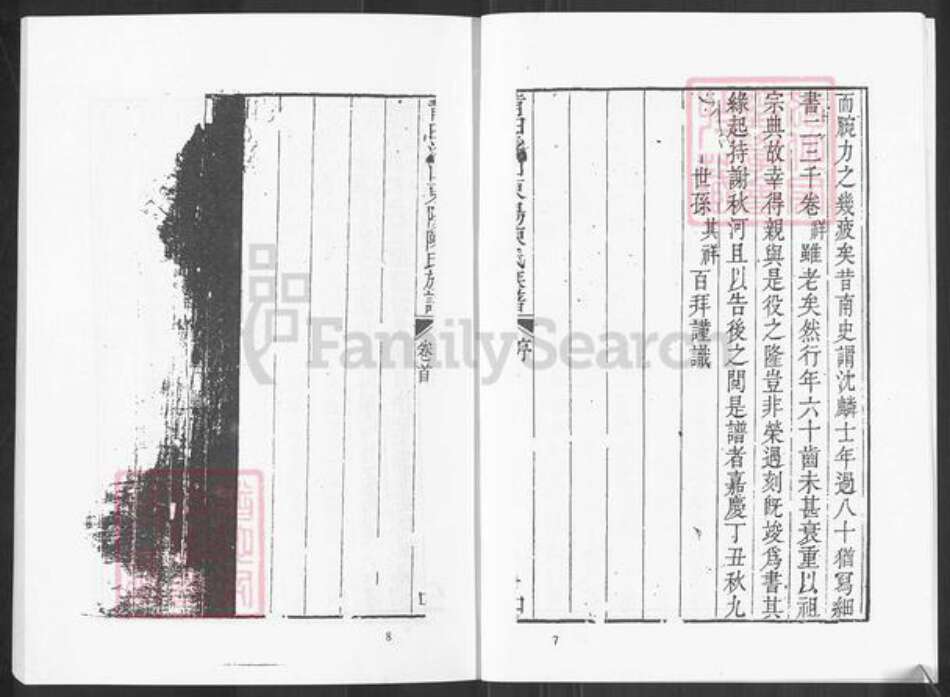 而腕力之幾疲矣昔南史謂沈麟士年過八十猶寫細
書二三千卷祥雖老矣然行年六十齒未甚衰重以祖
宗典故幸得親與是役之隆豈非榮遇刻既竣爲書其
緣起持謝秋河且以告後之閱是譜者嘉慶丁丑秋九
世孫其祥百拜謹識
東陽陳氏族譜
序
7
東陽陳氏族譜
卷首
8
FamilySearch